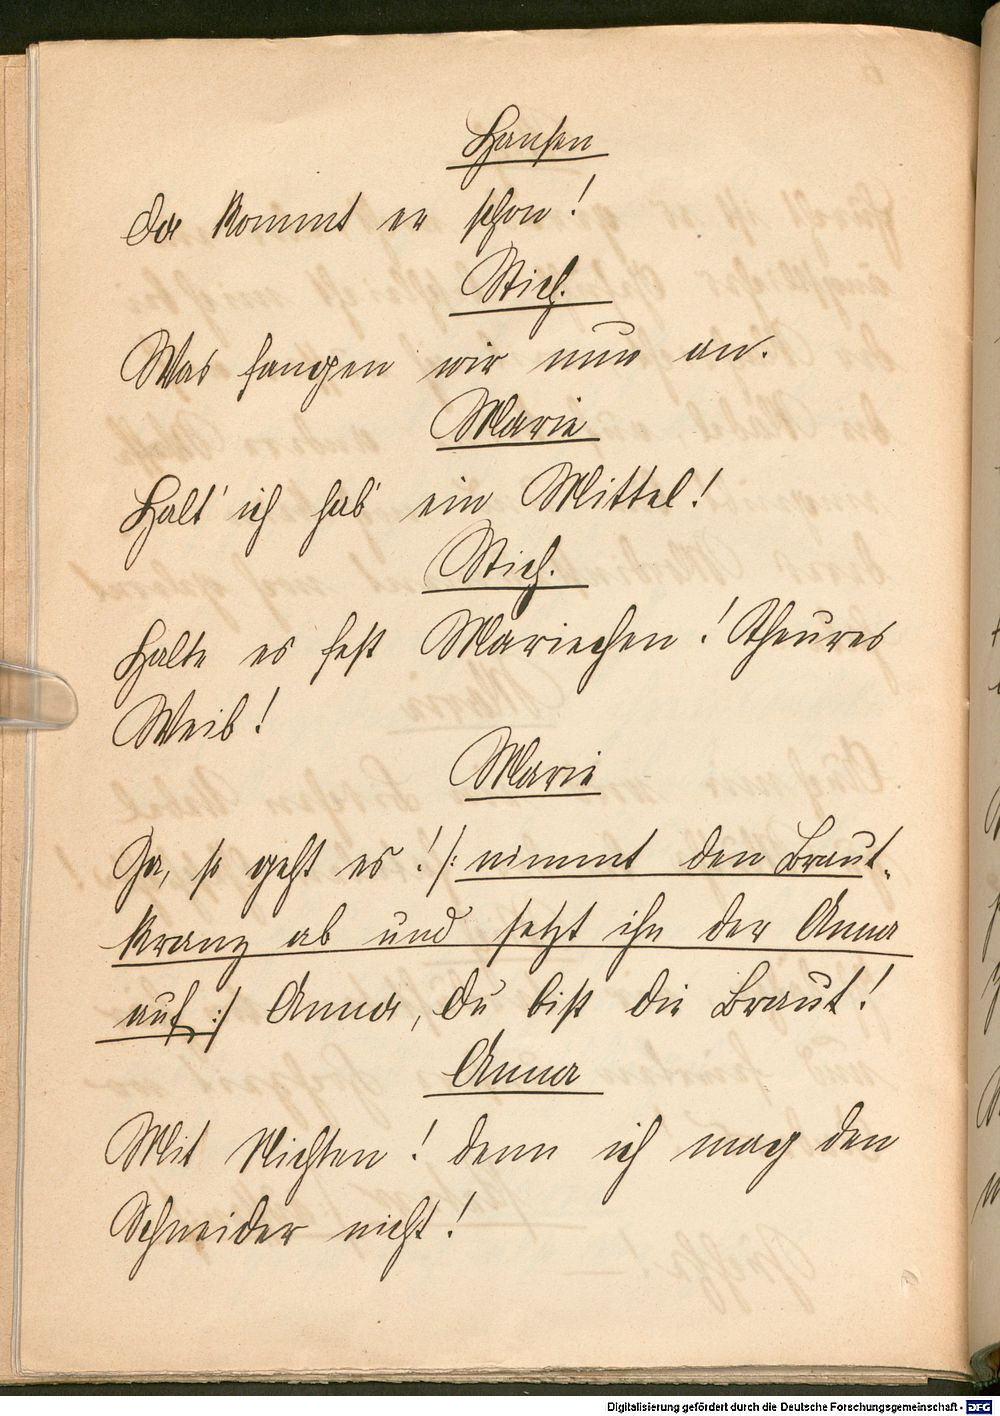 Hansen
Da kommt er schon!
Stich.
Was fangen wir nun an.
Marie
Halt' ich hab' ein Mittel!
Stich.
Halte es fest Mariechen! Theures
Weib!
Marie
Ja, so geht es! /: nimmt den Braut-
kranz ab und setzt ihn der Anna
auf :/ Anna, Du bist die Braut!
Anna
Mit Nichten! denn ich mag den
Schneider nicht!
Digitalisierung gefördert durch die Deutsche Forschungsgemeinschaft - DFG